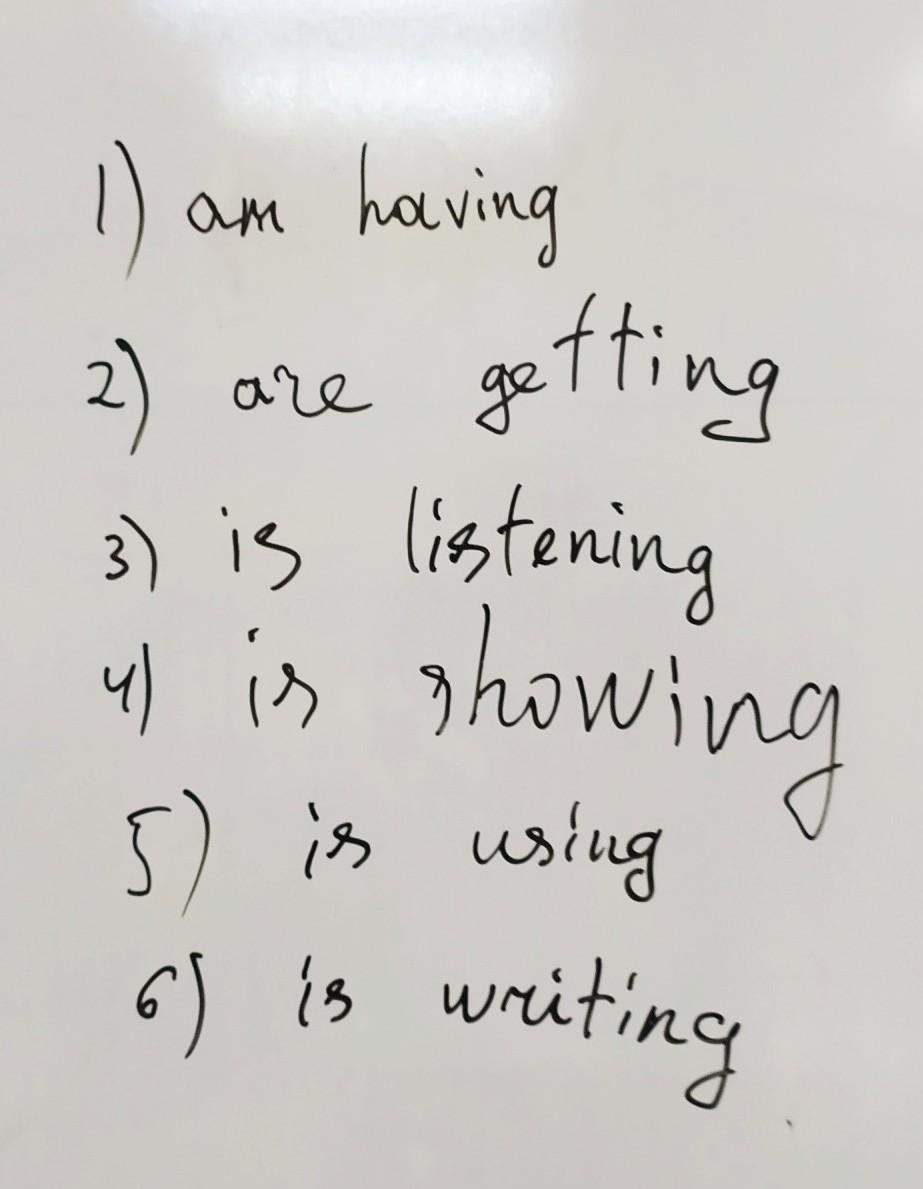 1) am having
2) are getting
3) is listening
4) is showing
5) is using
6) is writing